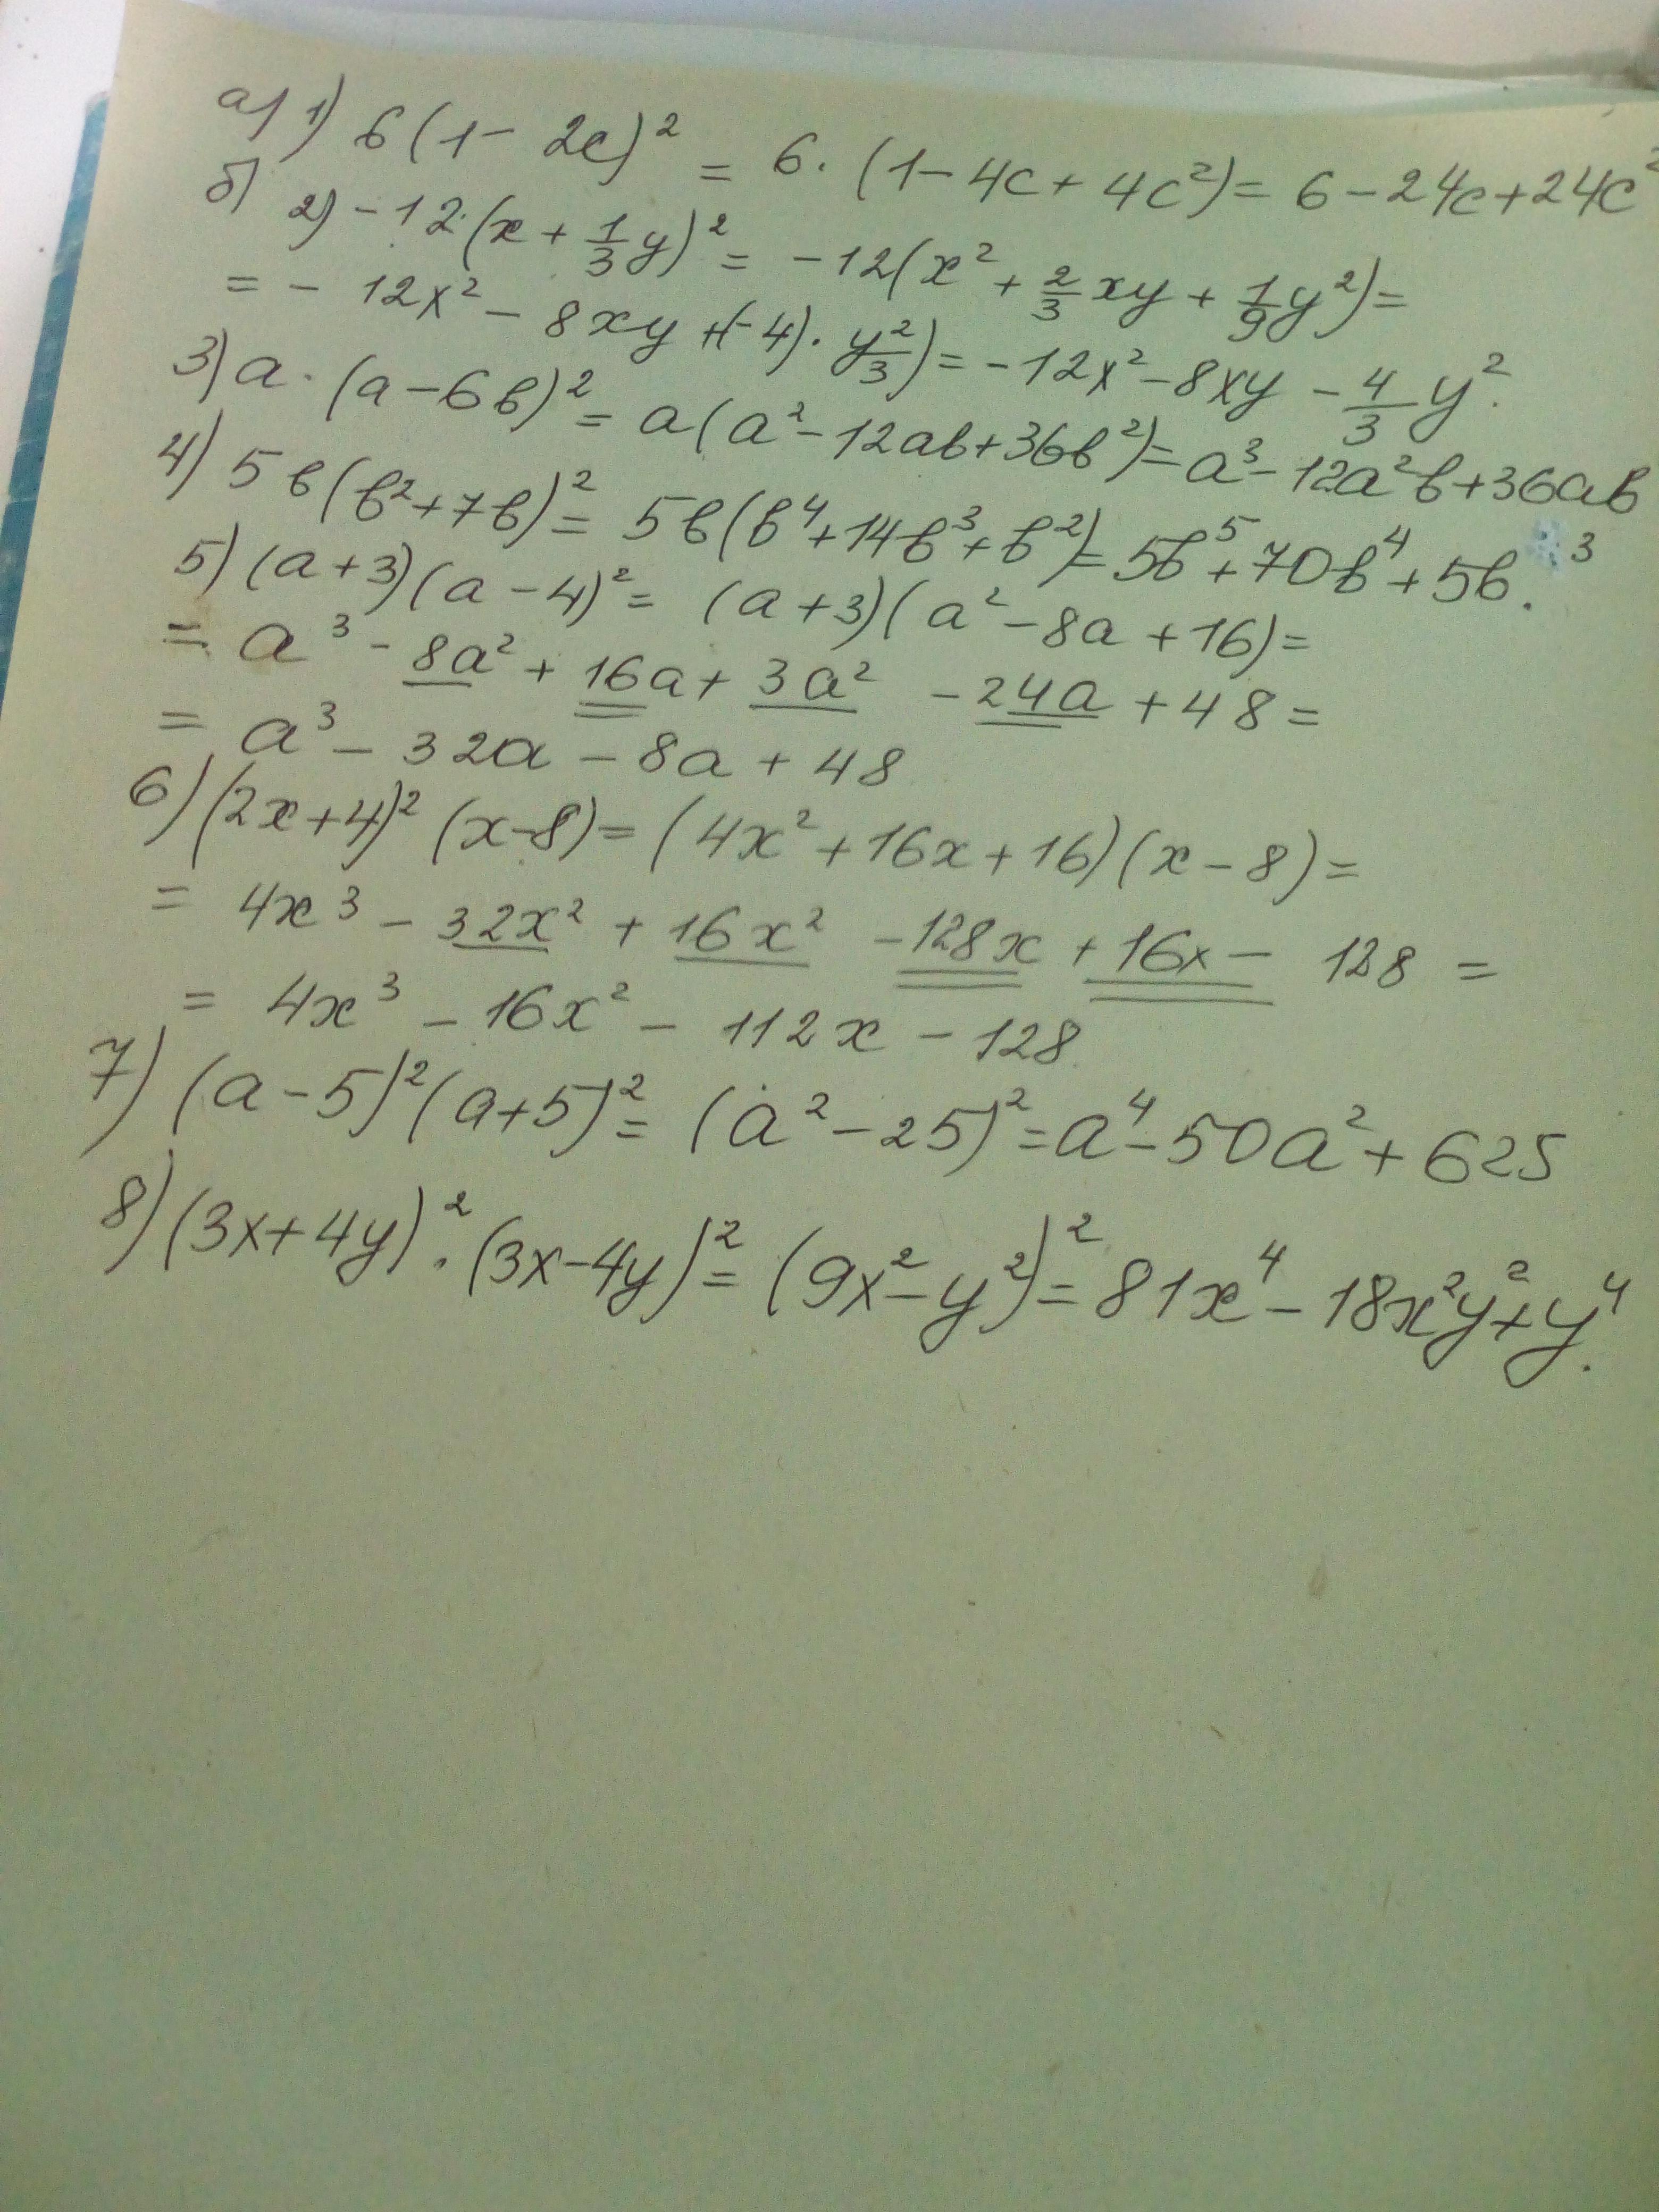 а) 1) 6(1 - 2c)² = 6·(1 - 4c + 4c²) = 6 - 24c + 24c²
б) 2) -12·(x + 1/3 y)² = -12(x² + 2/3 xy + 1/9 y²) =
= - 12x² - 8xy +(-4)· y²/3) = -12x² - 8xy - 4/3 y².
3) a·(a - 6b)² = a(a² - 12ab + 36b²) = a³ - 12a²b + 36ab
4) 5b(b² + 7b)² = 5b(b⁴ + 14b³ + b²) = 5b⁵ + 70b⁴ + 5b³.
5) (a + 3)(a - 4)² = (a + 3)(a² - 8a + 16) =
= a³ - 8a² + 16a + 3a² - 24a + 48 =
= a³ - 32a - 8a + 48
6) (2x + 4)² (x - 8) = (4x² + 16x + 16)(x - 8) =
= 4x³ - 32x² + 16x² - 128x + 16x - 128 =
= 4x³ - 16x² - 112x - 128
7) (a - 5)² (a + 5)² = (a² - 25)² = a⁴ - 50a² + 625
8) (3x + 4y)² · (3x - 4y)² = (9x² - y²)² = 81x⁴ - 18x²y² + y⁴.